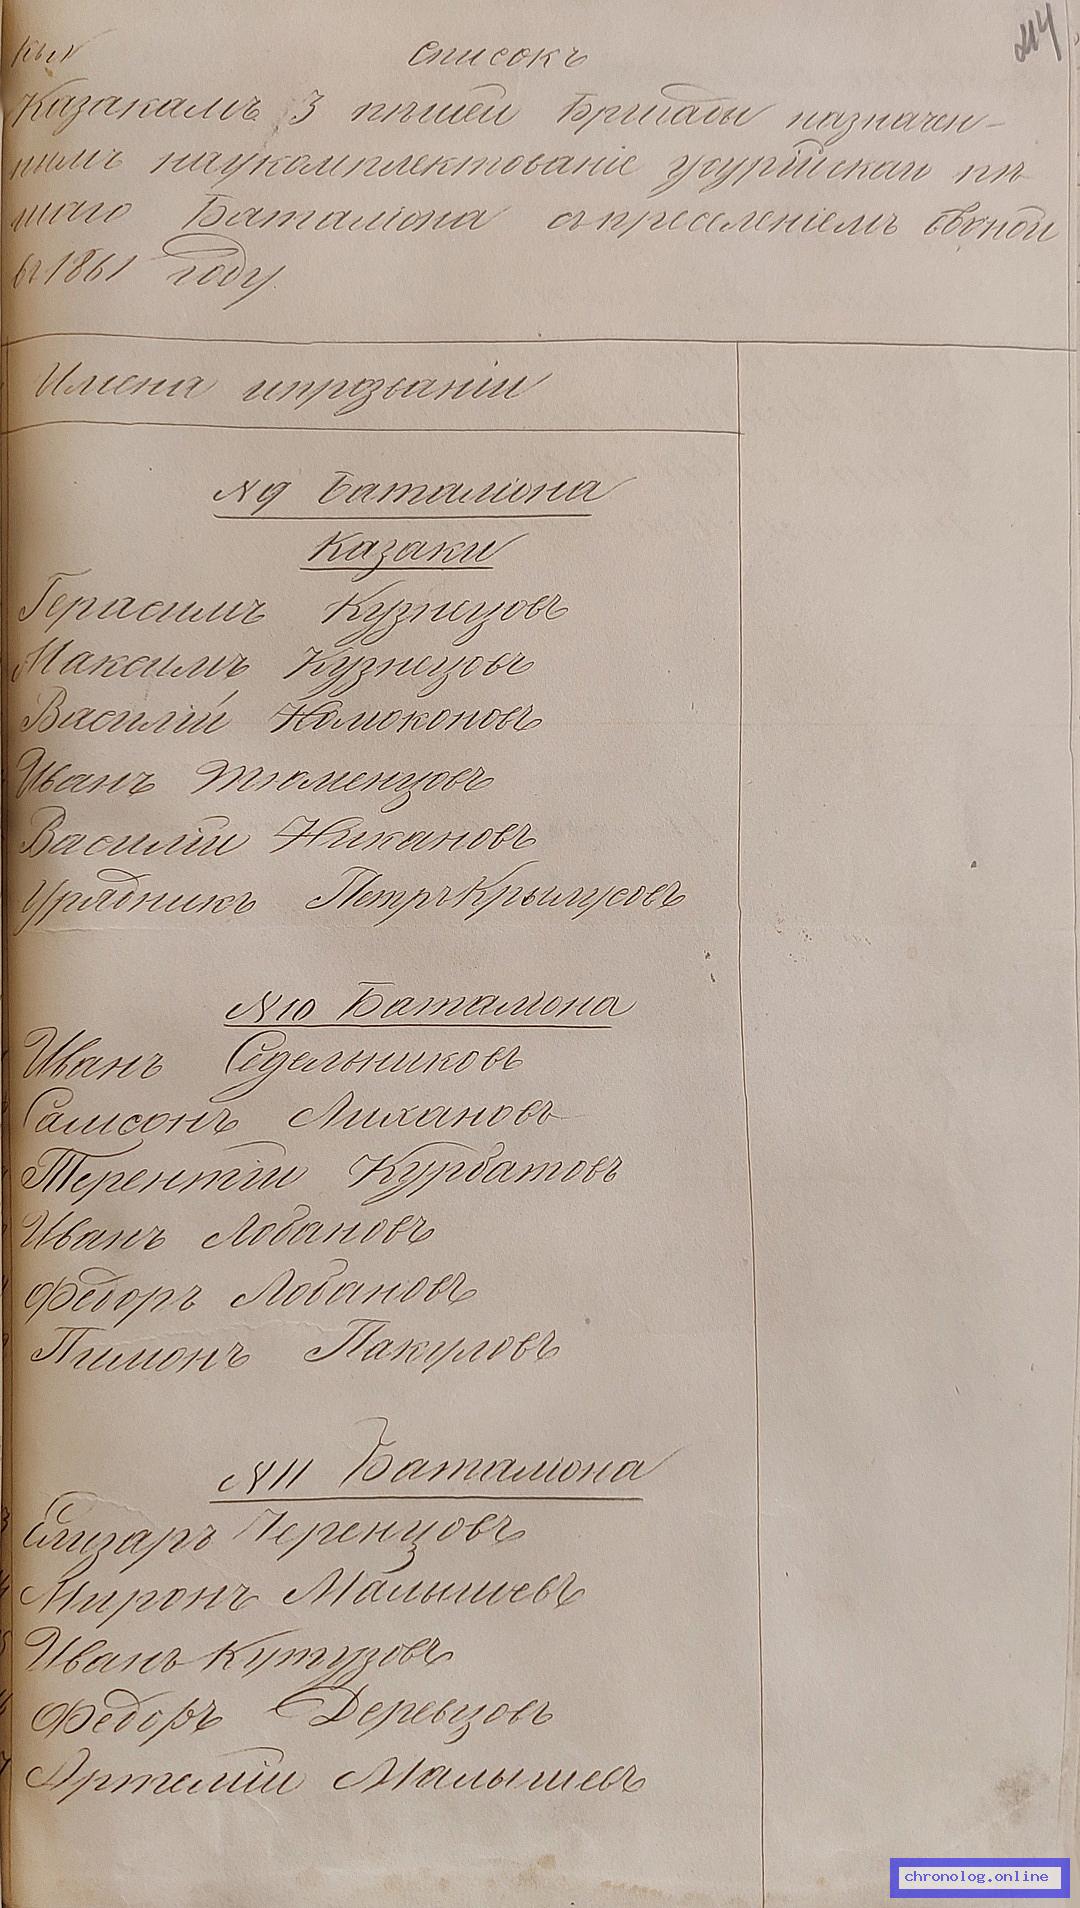 214
Списокъ
Казакамъ 3 пѣшей Бригады назначен-
нымъ наукомплектованіе усурійскаго пѣ
шаго Баталіона съпреселеніемъ свѣной
въ 1861 году.
Имена ипрозваніи
N 9 Баталіона
Казаки
Герасимъ Кузнецовъ
Максимъ Кузнецовъ
Василій Номоконовъ
Иванъ Тюменцовъ
Василіи Никановъ
Урядникъ Петръ Крымусовъ
N 10 Баталіона
Иванъ Седельниковъ
Самсонъ Лихановъ
Терентіи Курбатовъ
Иванъ Лобановъ
Федоръ Лобановъ
Пимонъ Пакуловъ
N 11 Баталіона
Елизаръ Черенцовъ
Миронъ Малышевъ
Иванъ Кутузовъ
Федоръ Деревцовъ
Артеміи Малышевъ
chronolog.online